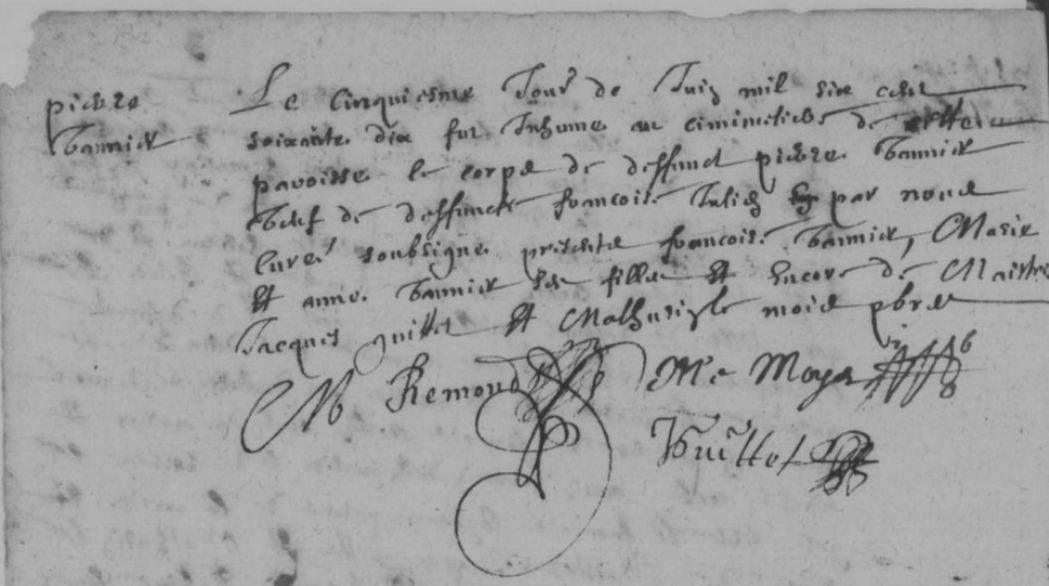 pierre
Vannier
Le cinquiesme Jour de Juin mil six cent
soixante dix fut Inhume au cimmetiere de cette
paroisse le corps de deffunct pierre Vannier
veuf de deffuncte francoise par nous
curé soubsigne presents francoise Vannier, Marie
et anne Vannier ses filles et Encore de Maistre
Jacques et Mathurin le moie pbres
M Remond M Le Moye